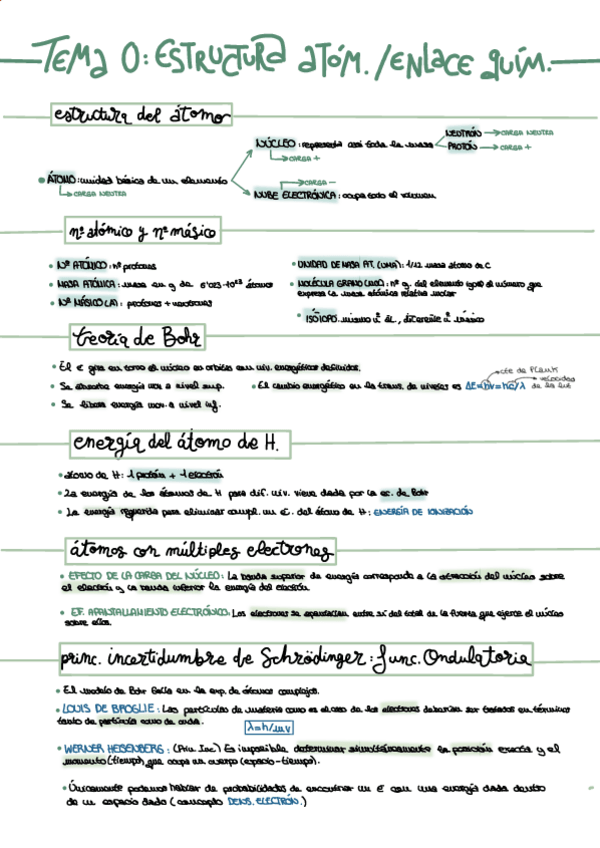 TEMA 0: ESTRUCTURA ATÓM. / ENLACE QUÍM.
estructura del átomo
NEUTRÓN → CARGA NEUTRA
NÚCLEO: representa casi toda la masa
PROTÓN → CARGA +
CARGA +
ÁTOMO: unidad básica de un elemento
CARGA NEUTRA
CARGA -
NUBE ELECTRÓNICA: ocupa todo el volumen
nº atómico y nº másico
• Nº ATÓMICO: nº protones
• UNIDAD DE MASA AT. (UMA): 1/12 masa átomo de C
• MASA ATÓMICA: masa en g de 6'023·10²³ átomos
• MOLÉCULA GRAMO (MOL): nº g. del elemento igual al número que
expresa la masa atómica relativa
• Nº MÁSICO (A): protones + neutrones
• ISÓTOPO: mismo nº at., diferente nº másico
teoría de Bohr
• El e⁻ gira en torno al núcleo en órbitas con niv. energéticos definidos.
cte de Plank
• Se absorbe energía mov. a nivel sup.
• El cambio energético en la trans. de niveles es ΔE=hν=hc/λ
velocidad
de la luz
• Se libera energía mov. a nivel inf.
energía del átomo de H.
• átomo de H: 1 protón + 1 electrón
• La energía de los átomos de H para dif. niv. viene dada por la ec. de Bohr
• La energía requerida para eliminar compl. un e⁻. del átomo de H: ENERGÍA DE IONIZACIÓN
átomos con múltiples electrones
• EFECTO DE LA CARGA DEL NÚCLEO: La banda superior de energía corresponde a la atracción del núcleo sobre
el electrón y la banda inferior la energía del electrón.
• EF. APANTALLAMIENTO ELECTRÓNICO: Los electrones se apantallan entre sí del total de la fuerza que ejerce el núcleo
sobre ellos.
princ. incertidumbre de Schrödinger: func. Ondulatoria
• El modelo de Bohr falla en la exp. de átomos complejos.
• LOUIS DE BROGLIE: Las partículas de materia como es el caso de los electrones deberían ser tratados en términos
tanto de partícula como de onda.
λ=h/mv
• WERNER HEISENBERG: (Prin. Inc.) Es imposible determinar simultáneamente la posición exacta y el
momento (tiempo) que ocupa un cuerpo (espacio-tiempo).
• Únicamente podemos hablar de probabilidades de encontrar un e⁻ con una energía dada dentro
de un espacio dado (concepto DENS. ELECTRÓN.)